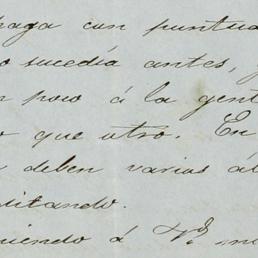 haga con puntua
o sucedía antes, y
n poco á la gent
o que otro. En
deben varias ál
ditando.
uiendo á Vd. mu